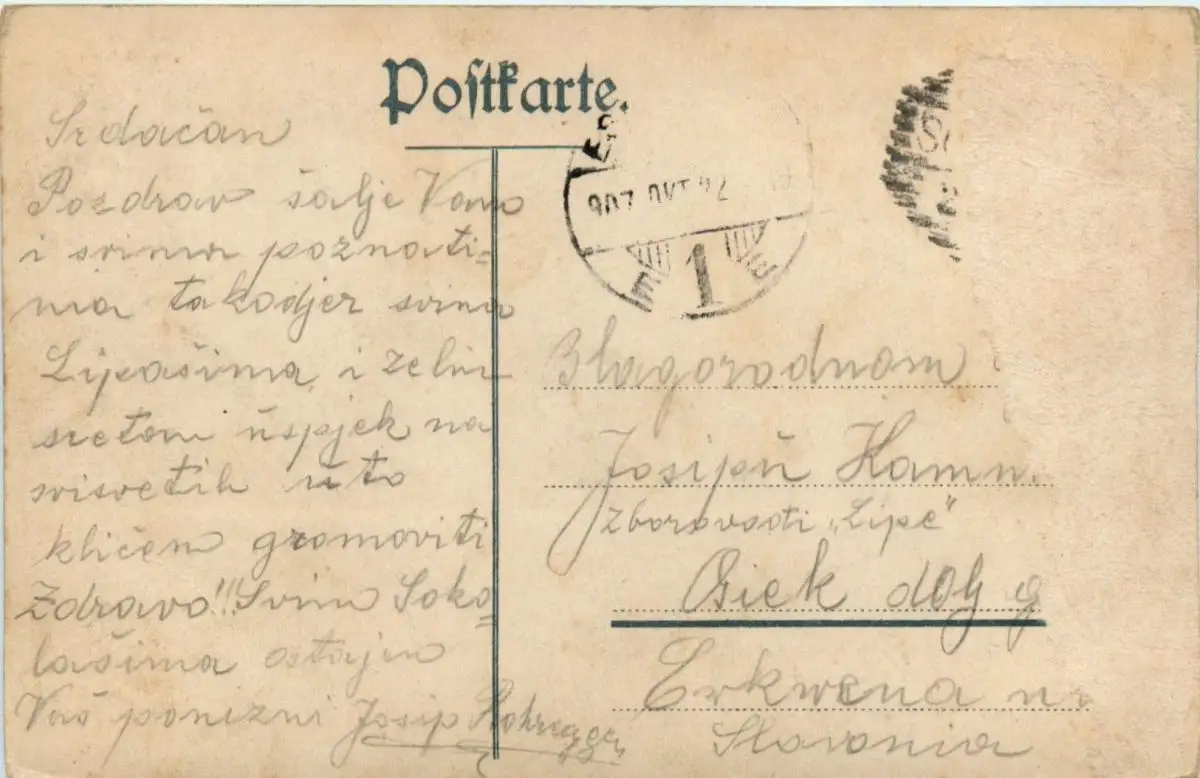 Postkarte.
Srdačan
Pozdrav šalje Vam
i svima poznati=
ma takodjer svima
Lipašima i želim
sretan uspjek na
svisvetih u to
kličem gromoviti
Zdravo!!! Svim Soko
lašima ostajem
Vaš ponizni Josip
907 OKT 22
1
Blagorodnom
Josipu Kamn
Zborovođi „Lipe"
Osiek dolj g
Crkvena
Slavonia